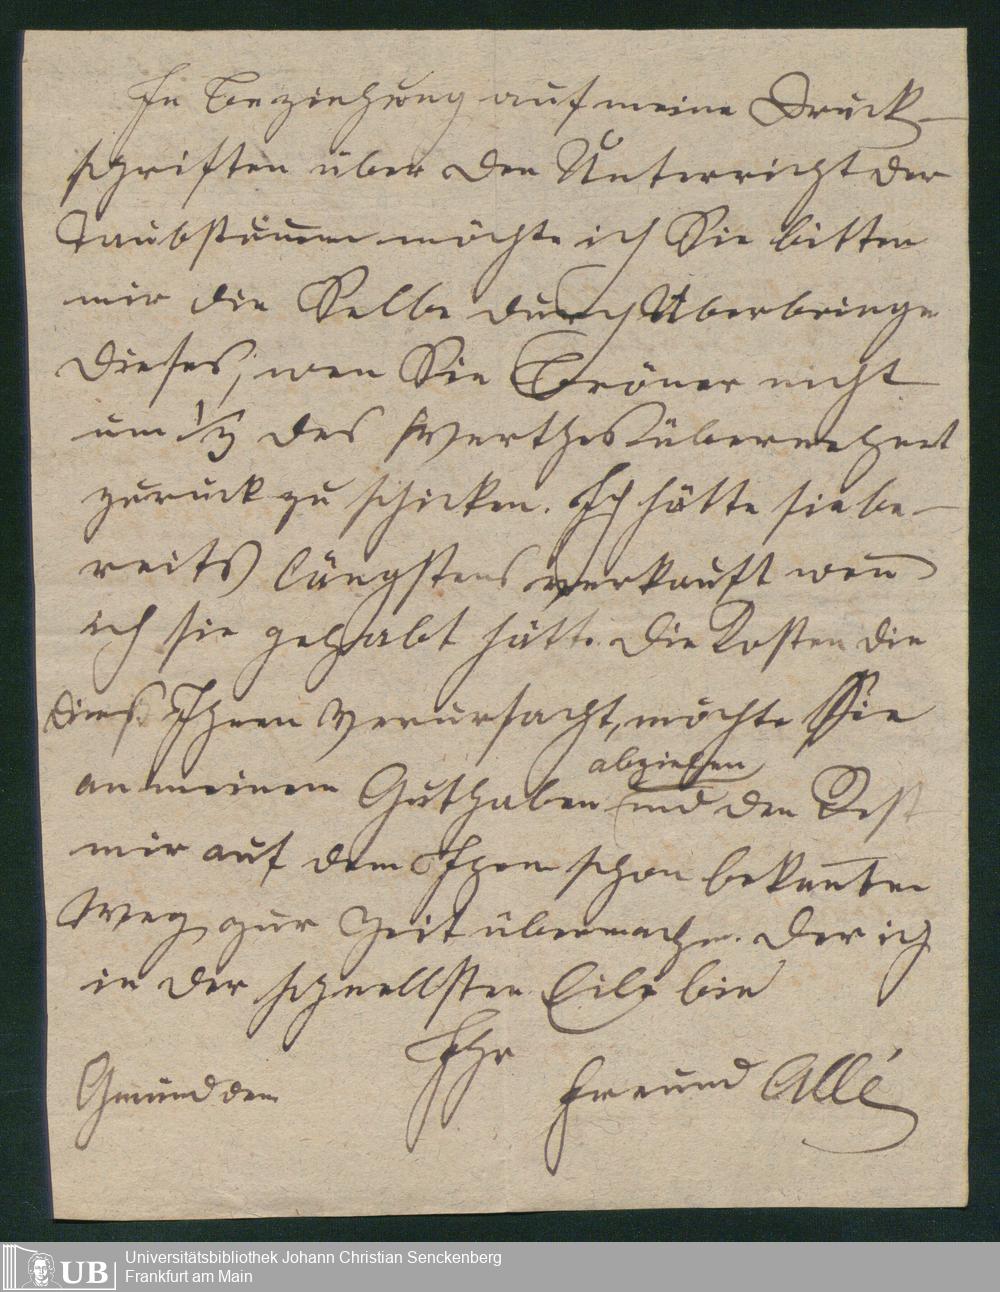 In Beziehung auf meine Druck-
schriften über den Unterricht der
Taubstummen möchte ich Sie bitten
mir die Selbe durch Überbringe
dieses, wen Sie Brönner nicht
um 1/3 des Werthes übernehmt
zurück zu schicken. Ich hätte sie be-
reits längstens verkauft wen̄
ich sie gehabt hätte. Die Kosten die
dies Ihnen verursacht, möchte Sie
an meinem Guthaben abziehen und den Rest
mir auf dem Ihnen schon bekan̄ten
Weg zur Zeit übermachen. Der ich
in der schnellsten Eile bin
Ihr
Gmünd den Freund Allé
UB Universitätsbibliothek Johann Christian Senckenberg
Frankfurt am Main